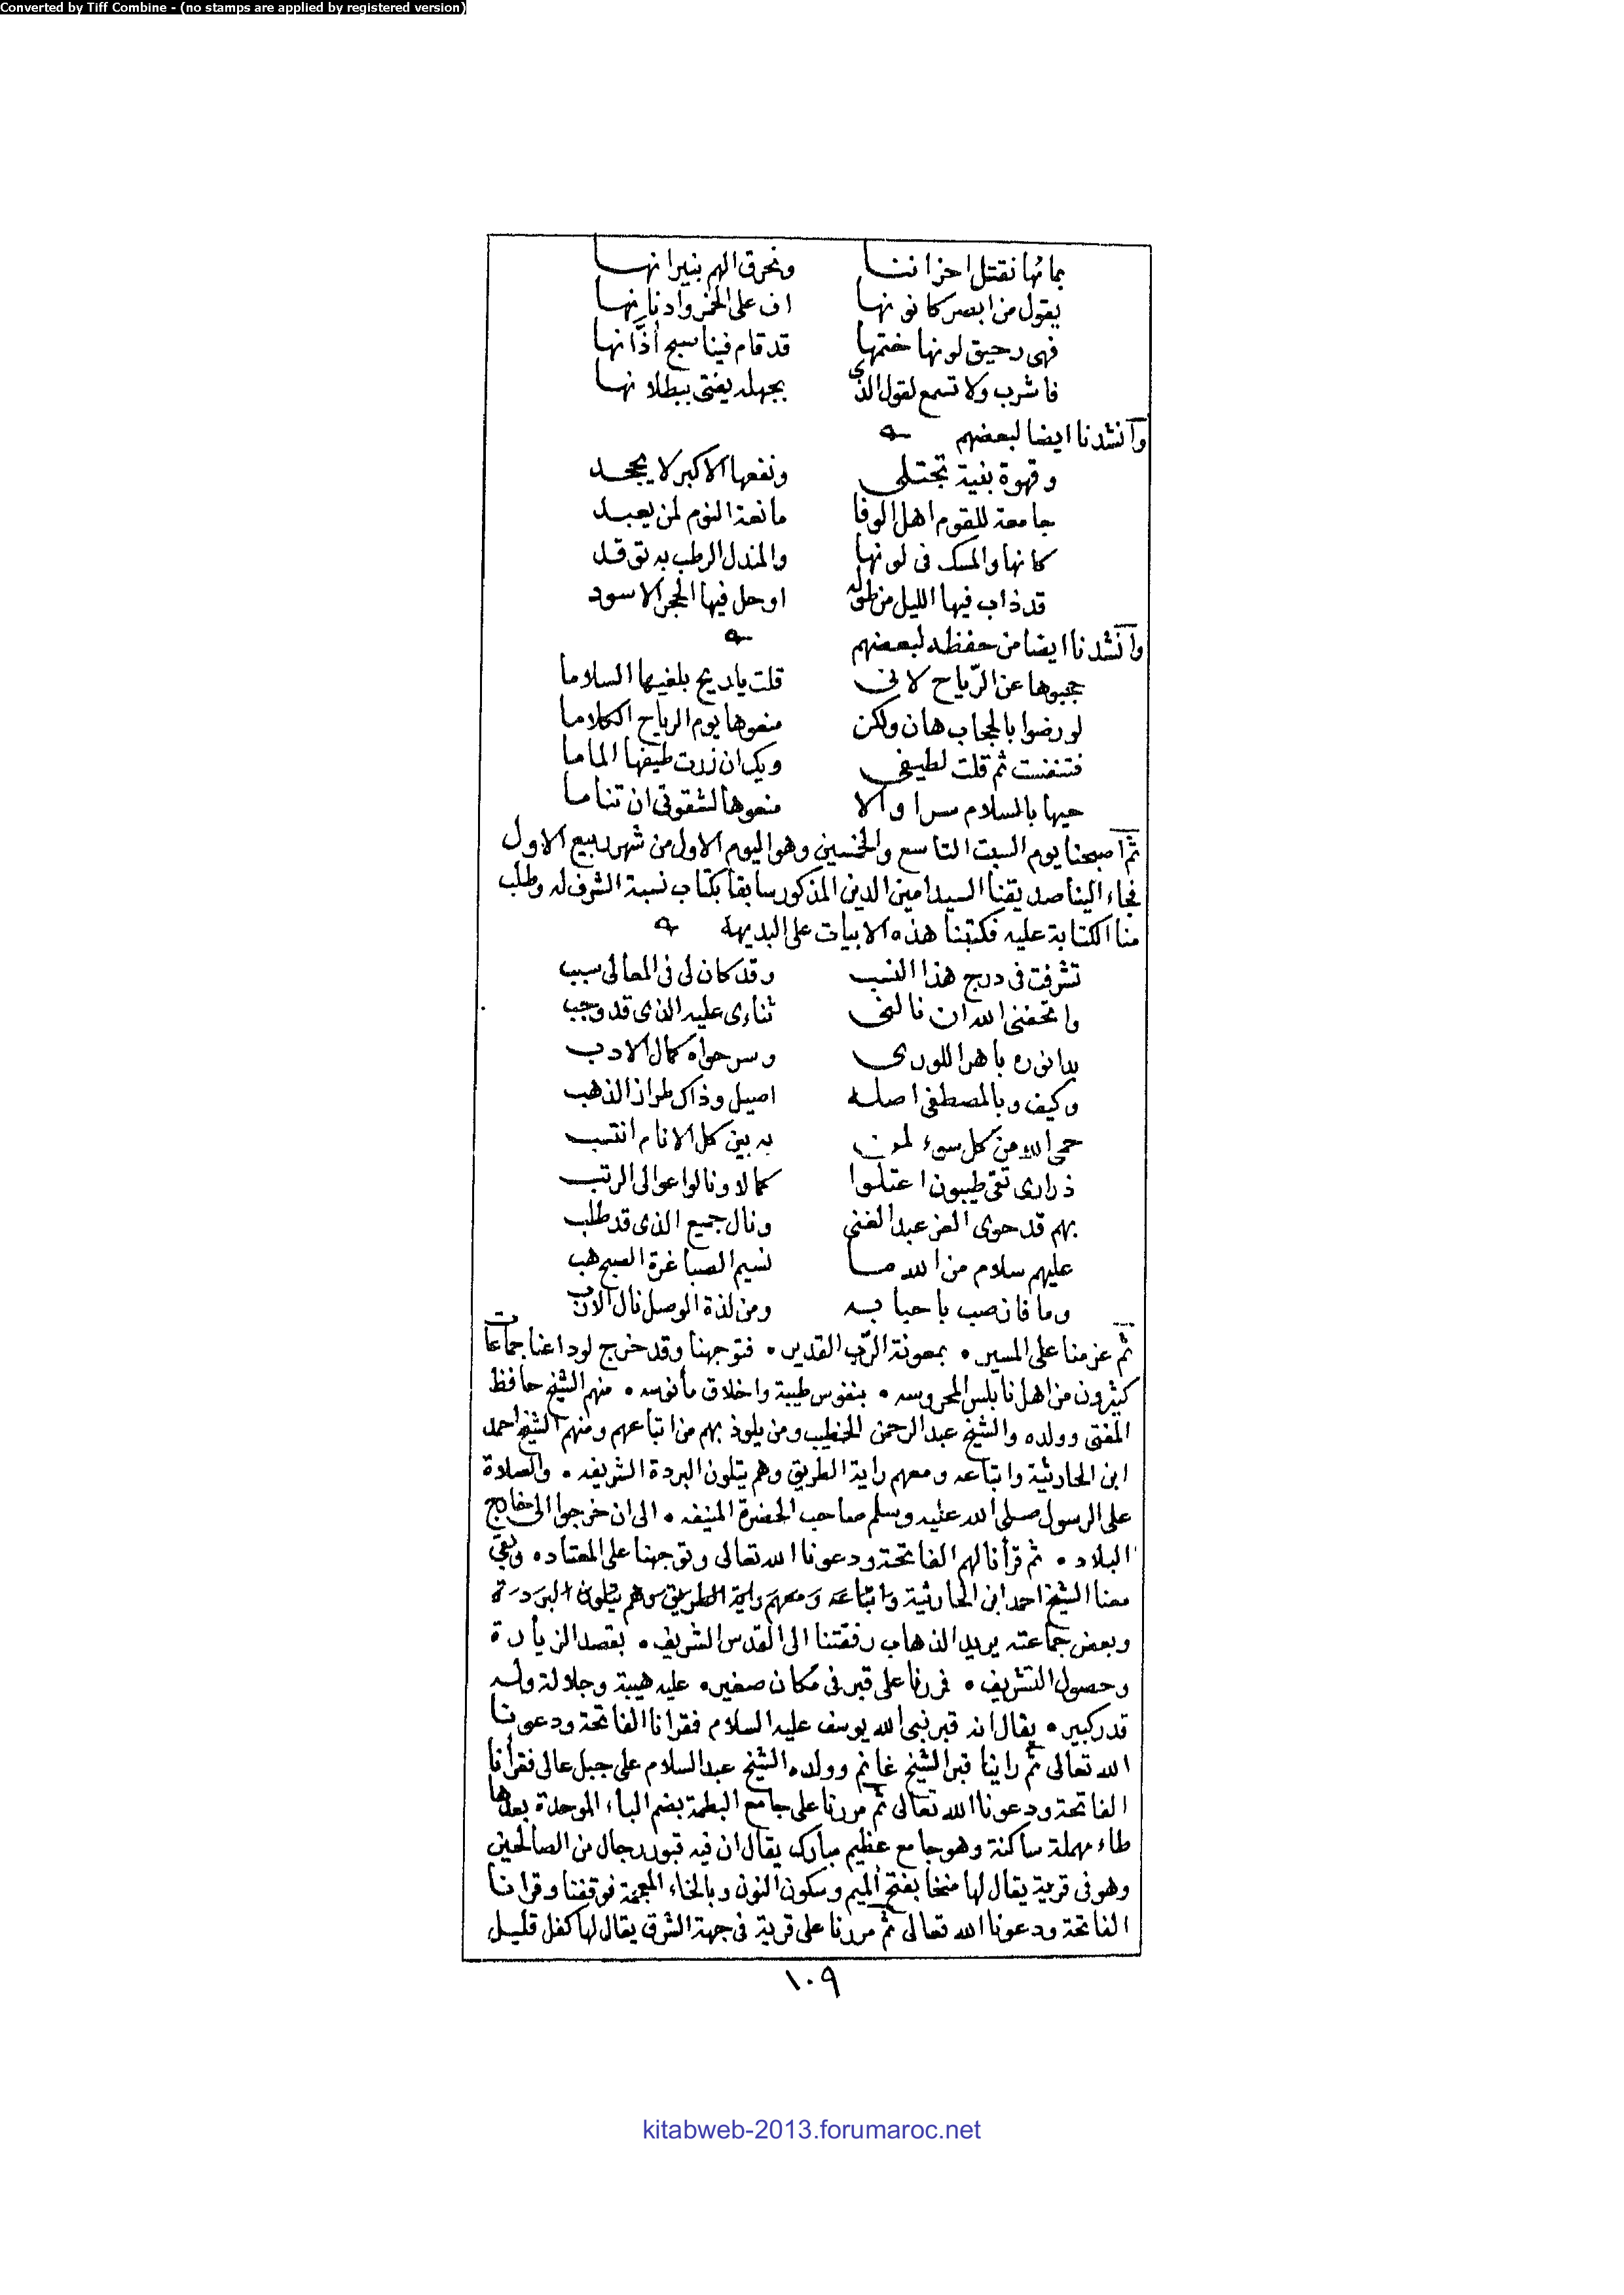 Converted by Tiff Combine - (no stamps are applied by registered version)
بمائها نقتل احزاننا ونحرق الهم بنيرانها
يقول من ابصر كانونها اف على الخمر وادنانها
فهى رحيق لونها ختمها قد قام فينا سبح اذانها
فاشرب ولا تسمع لقول الذى بجهله يفتى ببطلانها
وانشدنا ايضا لبعضهم
وقهوة بنية تجتلى ونفعها الاكبر لا يجحد
جامعة للقوم اهل الوفا مانعة النوم لمن يعبد
كانها والمسك فى لونها والمندل الرطب به توقد
قد ذاب فيها الليل من طوله اوحل فيها الحجر الاسود
وانشدنا ايضا من حفظه لبعضهم
حجبوها عن الرّياح لانى قلت ياريح بلغيها السلاما
لو رضوا بالحجاب هان ولكن منعوها يوم الرياح الكلاما
فتنفست ثم قلت لطيفى ويك ان زرت طيفها الماما
حيها بالسلام سرا والا منعوها لشقوتى ان تناما
ثم اصبحنا يوم السبت التاسع والخمسين وهو اليوم الاول من شهر ربيع الاول
فجاء الينا صديقنا السيد امين الدين المذكور سابقا بكتاب نسبة الشرف له وطلب
منا الكتابة عليه فكتبنا هذه الابيات على البديهة
تشرفت فى درج هذا النسب وقد كان لى فى المعالى سبب
واتحفنى الله ان فالنى ثناءى عليه الذى قد وجب
بدا نوره باهرا للورى وسر حواه كمال الادب
وكيف وبالمصطفى اصله اصيل وذاك طراز الذهب
حمى الله من كل سوء لمن به بين كل الانام انتسب
ذرارى تقى طيبون اعتلوا كمالا ونالوا عوالى الرتب
بهم قد حوى العز عبد الغنى ونال جميع الذى قد طلب
عليهم سلام من الله ما نسيم الصبا غرة الصبح هب
وما فاز صب باحبابه ومن لذة الوصل نال الارب
ثم عزمنا على المسير • بمعونة الرّب القدير • فتوجهنا وقد خرج لوداعنا جماعات
كثيرون من اهل نابلس المحروسه • بنفوس طيبة واخلاق مأنوسه • منهم الشيخ حافظ
المفتى وولده والشيخ عبد الرحمن الخطيب ومن يلوذ بهم من اتباعهم ومنهم الشيخ احمد
ابن الحارثية واتباعه ومعهم راية الطريق وهم يتلون البردة الشريفه • والصلاة
على الرسول صلى الله عليه وسلم صاحب الحضرة المنيفه • الى ان خرجوا الى خارج
البلاد • ثم قرأنا لهم الفاتحة ودعونا الله تعالى وتوجهنا على المعتاد • وبقى
معنا الشيخ احمد ابن الحارثية واتباعه ومعهم راية الطريق وهم يتلون البردة
وبعض جماعته يريد الذهاب رفقتنا الى القدس الشريف • بقصد الزيارة
وحصول التشريف • فمررنا على قبر فى مكان صغير • عليه هيبة وجلالة وله
قدر كبير • يقال انه قبر نبى الله يوسف عليه السلام فقرانا الفاتحة ودعونا
الله تعالى ثم راينا قبر الشيخ غانم وولده الشيخ عبد السلام على جبل عالى فقرأنا
الفاتحة ودعونا الله تعالى ثم مررنا على جامع البطمة بضم الباء الموحدة بعدها
طاء مهملة ساكنة وهو جامع عظيم مبارك يقال ان فيه قبور رجال من الصالحين
وهو فى قرية يقال لها منخا بفتح الميم وسكون النون وبالخاء المعجمة فوقفنا وقرانا
الفاتحة ودعونا الله تعالى ثم مررنا على قرية فى جهة الشرق يقال لها كفل قليل
١٠٩
kitabweb-2013.forumaroc.net